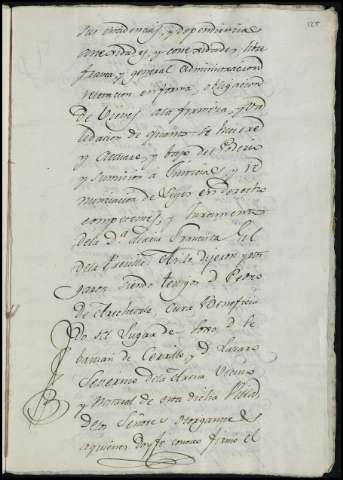 125
sus incidencias, y dependencias
anexidades, y conexidades, libre
franca, y general administracion
relevacion en forma, obligacion
de Vienes, a la firmeza, y va
lidacion de quanto se hiciere
y actuare, y bajo de
y sumision a Justicias, y re
nunciacion de Leyes en derecho
competentes, y Juramento
de la d.ª Maria Francisca Gil
de la Asi lo dijeron y otor
garon siendo testigos d. Pedro
de Arechavala Cura Beneficia
do del Lugar de d. Se
bastian de y d. Lazaro
Severino de la Arena Vecino
y Natural de esta dicha Villa
de los Señores otorgantes
a quienes doy fe conozco firmo el